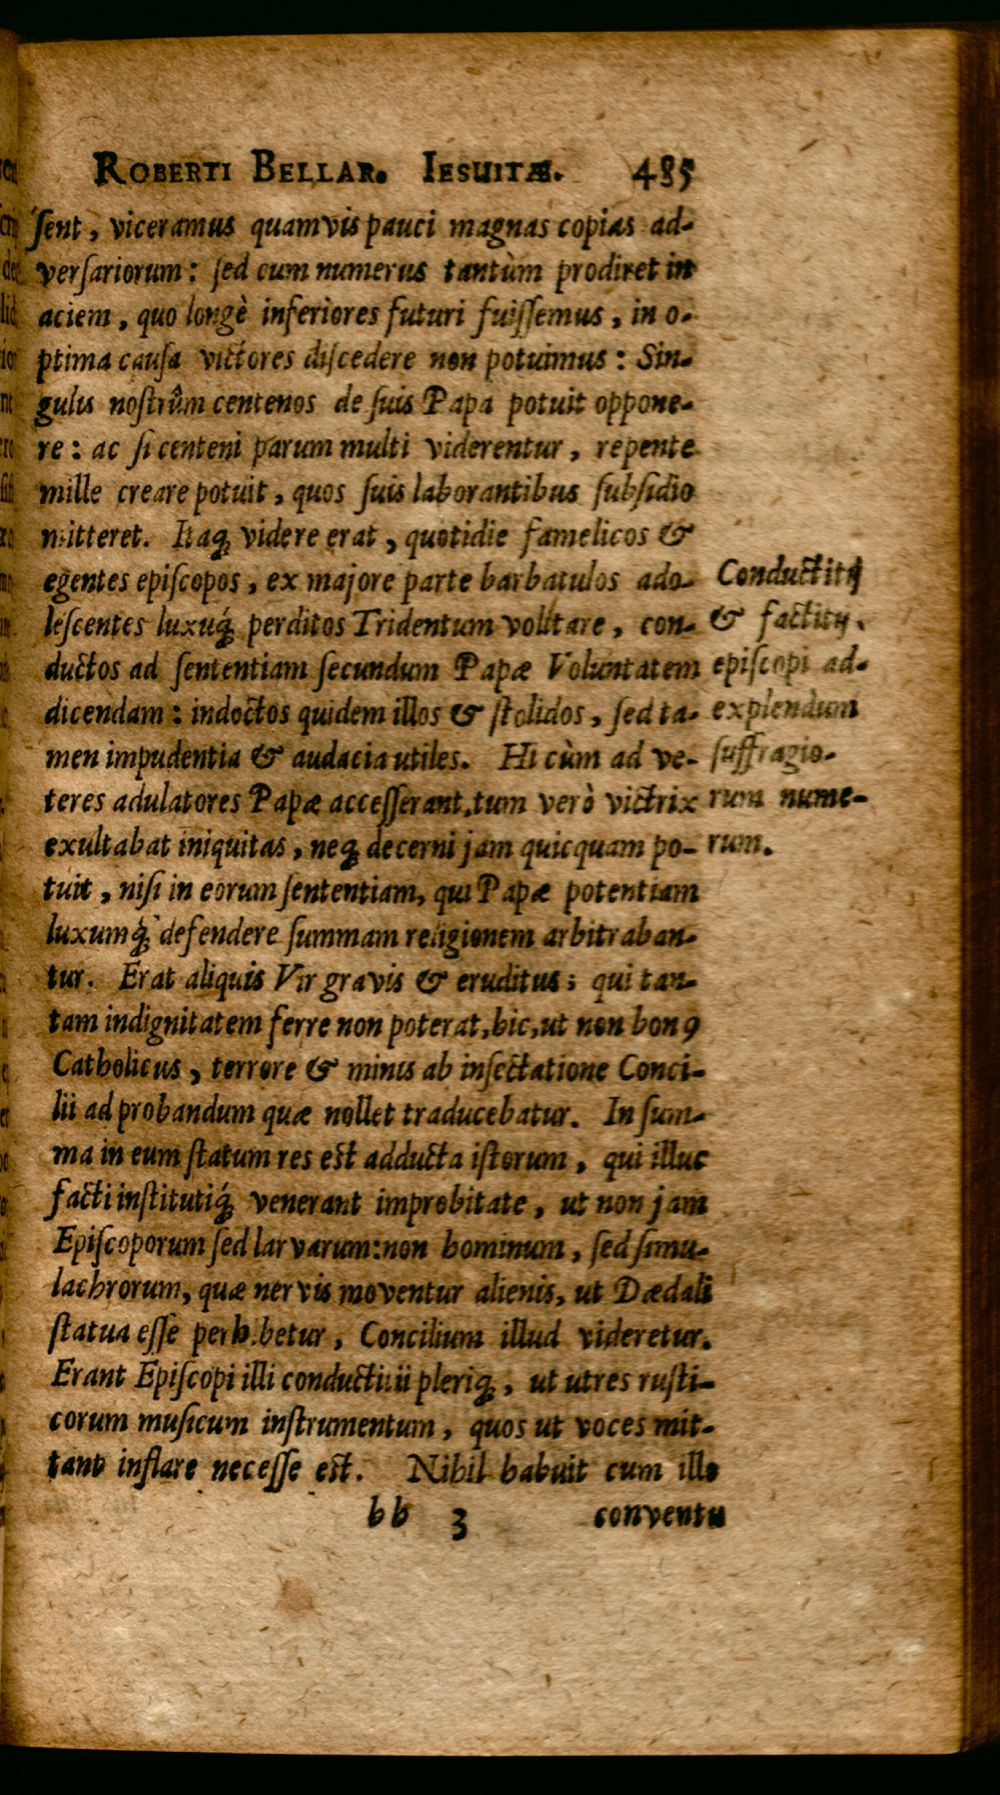 ROBERTI BELLAR. IESUITÆ. 485
ſent, viceramus quamvis pauci magnas copias ad-
verſariorum: ſed cum numerus tantùm prodiret in
aciem, quo longè inferiores futuri fuiſſemus, in o-
ptima cauſa victores diſcedere non potuimus: Sin-
gulis noſtrûm centenos de ſuis Papa potuit oppone-
re: ac ſi centeni parum multi viderentur, repente
mille creare potuit, quos ſuis laborantibus ſubſidio
mitteret. Itaq; videre erat, quotidie famelicos &
egentes epiſcopos, ex majore parte barbatulos ado-
leſcentes luxuq́; perditos Tridentum volitare, con-
ductos ad ſententiam ſecundum Papæ Voluntatem
dicendam: indoctos quidem illos & ſtolidos, ſed ta-
men impudentia & audacia utiles. Hi cùm ad ve-
teres adulatores Papæ acceſſerant, tum verò victrix
exultabat iniquitas, neq; decerni jam quicquam po-
tuit, niſi in eorum ſententiam, qui Papæ potentiam
luxumq́; defendere ſummam religionem arbitraban-
tur. Erat aliquis Vir gravis & eruditus; qui tan-
tam indignitatem ferre non poterat, hic, ut non bonꝰ
Catholicus, terrore & minis ab inſectatione Conci-
lii ad probandum quæ nollet traducebatur. In ſum-
ma in eum ſtatum res est adducta iſtorum, qui illuc
facti inſtitutiq́; venerant improbitate, ut non jam
Epiſcoporum ſed larvarum: non hominum, ſed ſimu-
lachrorum, quæ nervis moventur alienis, ut Dædali
ſtatua eſſe perhibetur, Concilium illud videretur.
Erant Epiſcopi illi conductitii pleriq;, ut utres ruſti-
corum muſicum inſtrumentum, quos ut voces mit-
tant inflare neceſſe est. Nihil habuit cum illo
bb 3 conventu
Conductitij
& factitij
epiſcopi ad-
explendum
ſuffragio-
rum nume-
rum.